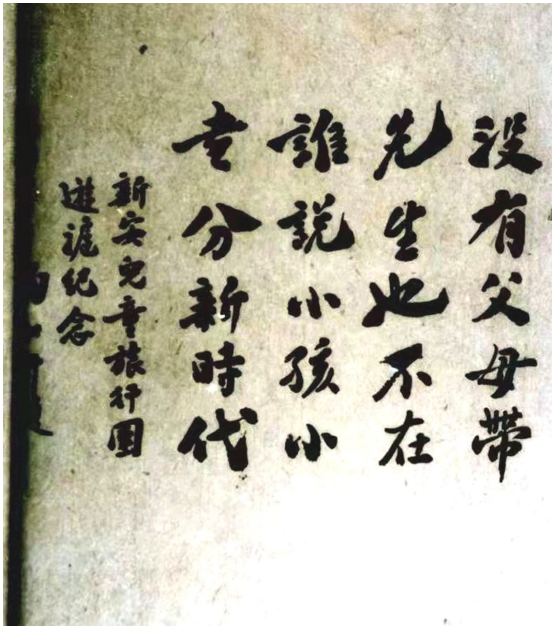 没有父母帶
先生也不在
誰説小孩小
划分新時代
新安兒童旅行團
遊滬纪念